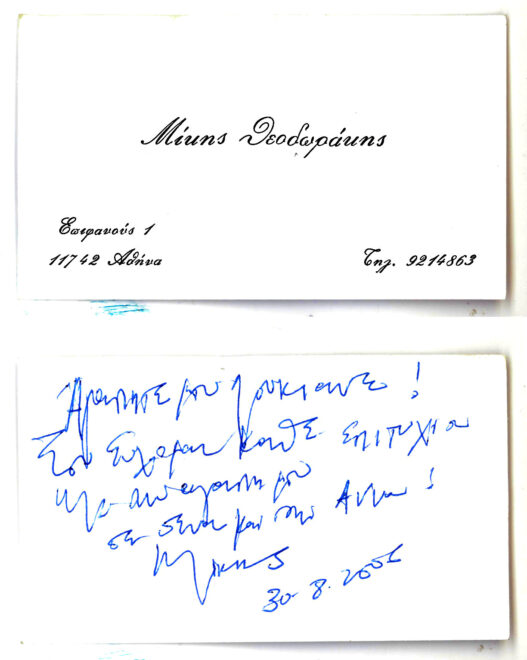 Μίκης Θεοδωράκης
Επιφανούς 1
11742 Αθήνα
Τηλ. 9214863
Αγαπητέ μου Λουκιανέ!
Σου εύχομαι κάθε επιτυχία
με την αγάπη μου
σε σένα και την Άννα!
Μίκης
30-8-2006